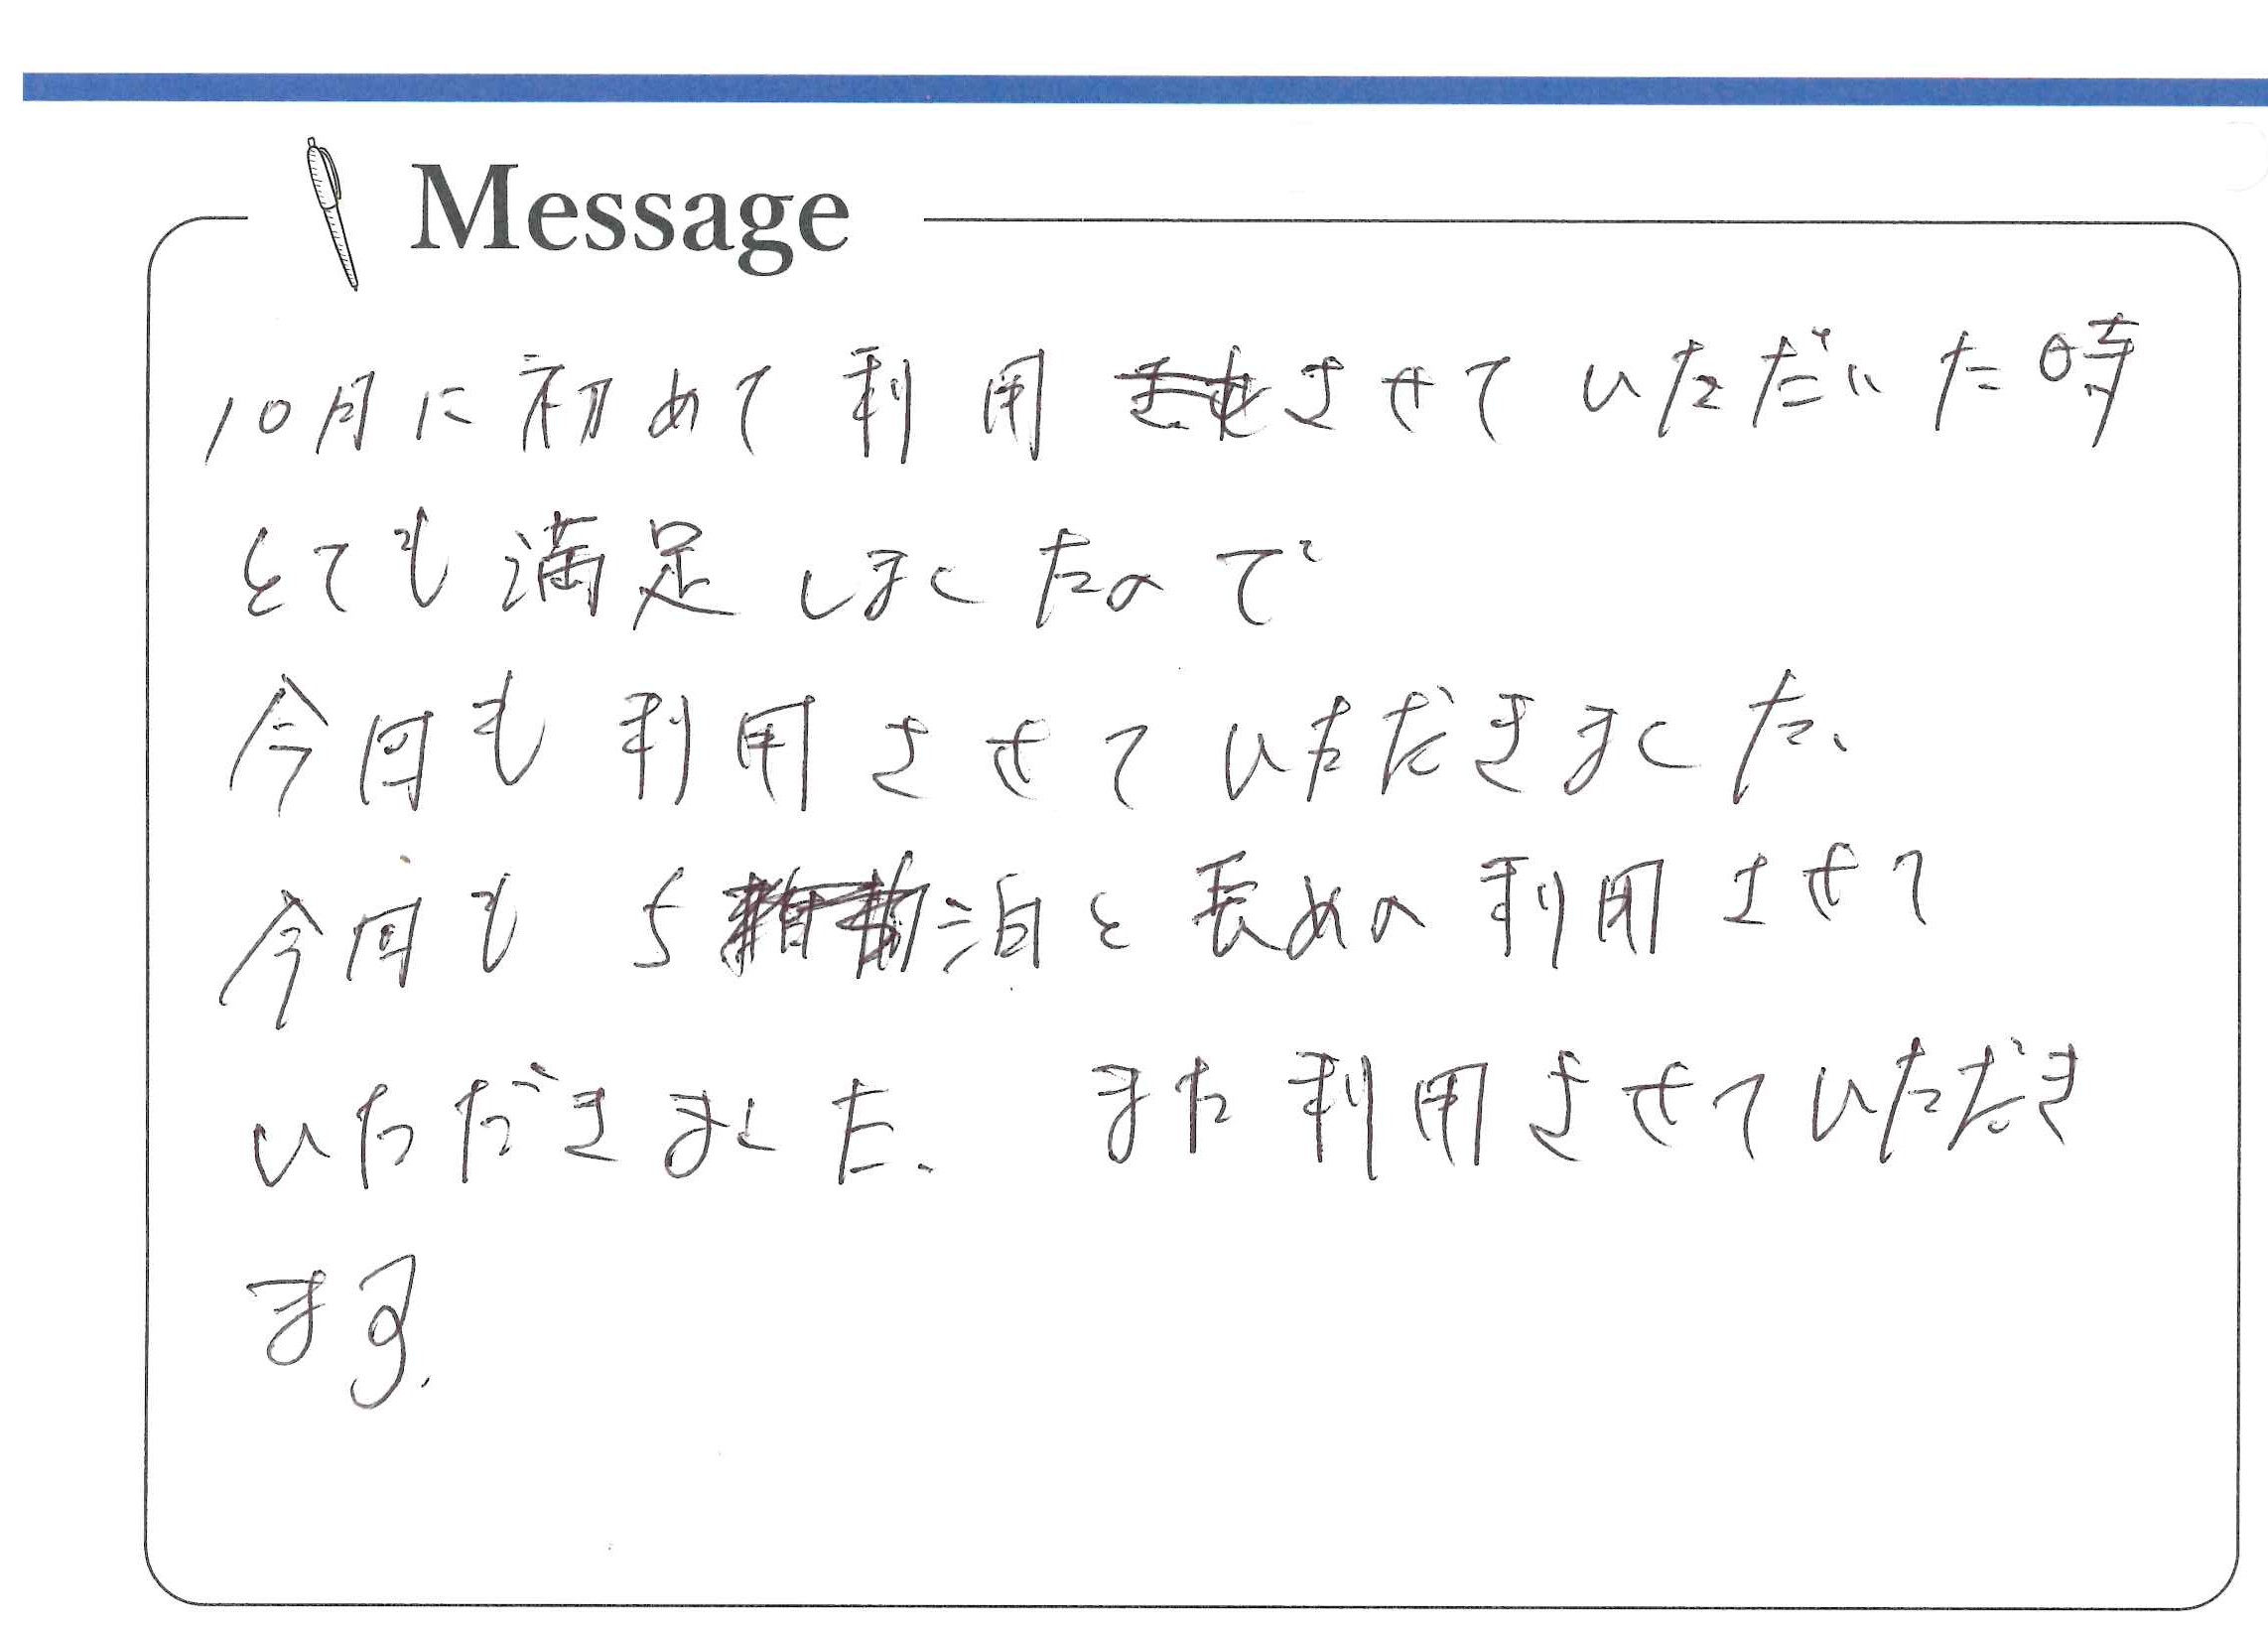 Message
10月に初めて利用させていただいた時
とても満足しましたので
今回も利用させていただきました、
今回も5泊と長めの利用させて
いただきました、また利用させていただき
ます.